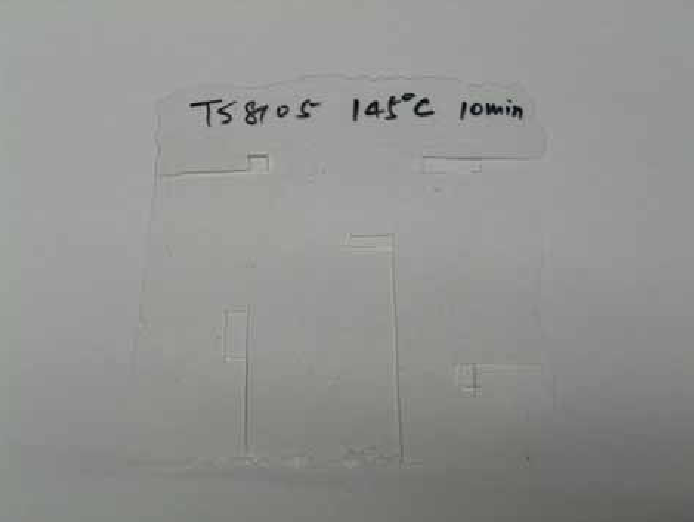 TS8105 145°C 10min